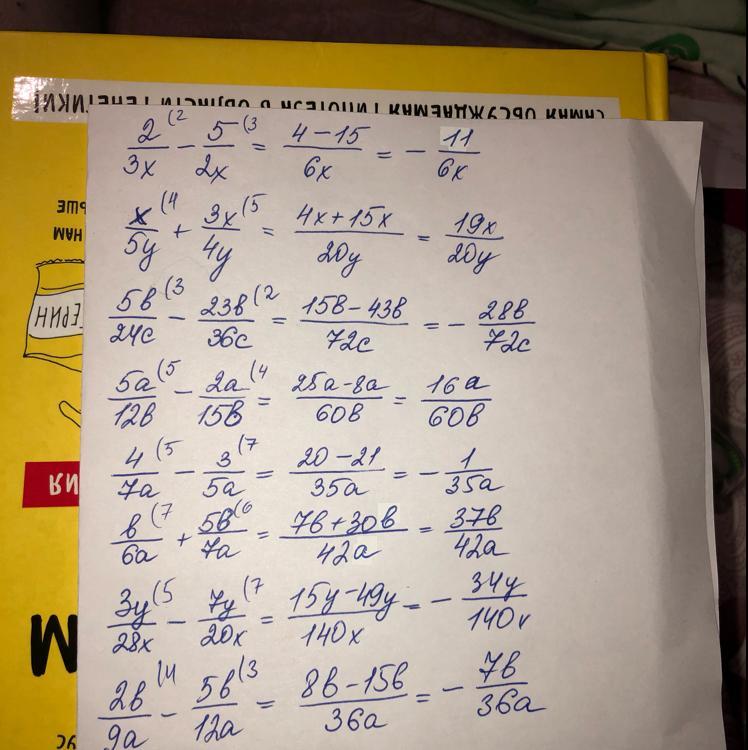 САМАЯ ОБСУЖДАЕМАЯ ГИПОТЕЗА В ОБЛАСТИ ГЕНЕТИКИ!
2/3x (2 - 5/2x (3 = (4 - 15)/6x = - 11/6x
x/5y (4 + 3x/4y (5 = (4x + 15x)/20y = 19x/20y
5в/24c (3 - 23в/36c (2 = (15в - 43в)/72c = - 28в/72c
5a/12в (5 - 2a/15в (4 = (25a - 8a)/60в = 16a/60в
4/7a (5 - 3/5a (7 = (20 - 21)/35a = - 1/35a
в/6a (7 + 5в/7a (6 = (7в + 30в)/42a = 37в/42a
3y/28x (5 - 7y/20x (7 = (15y - 49y)/140x = - 34y/140x
2в/9a (4 - 5в/12a (3 = (8в - 15в)/36a = - 7в/36a
НАМ